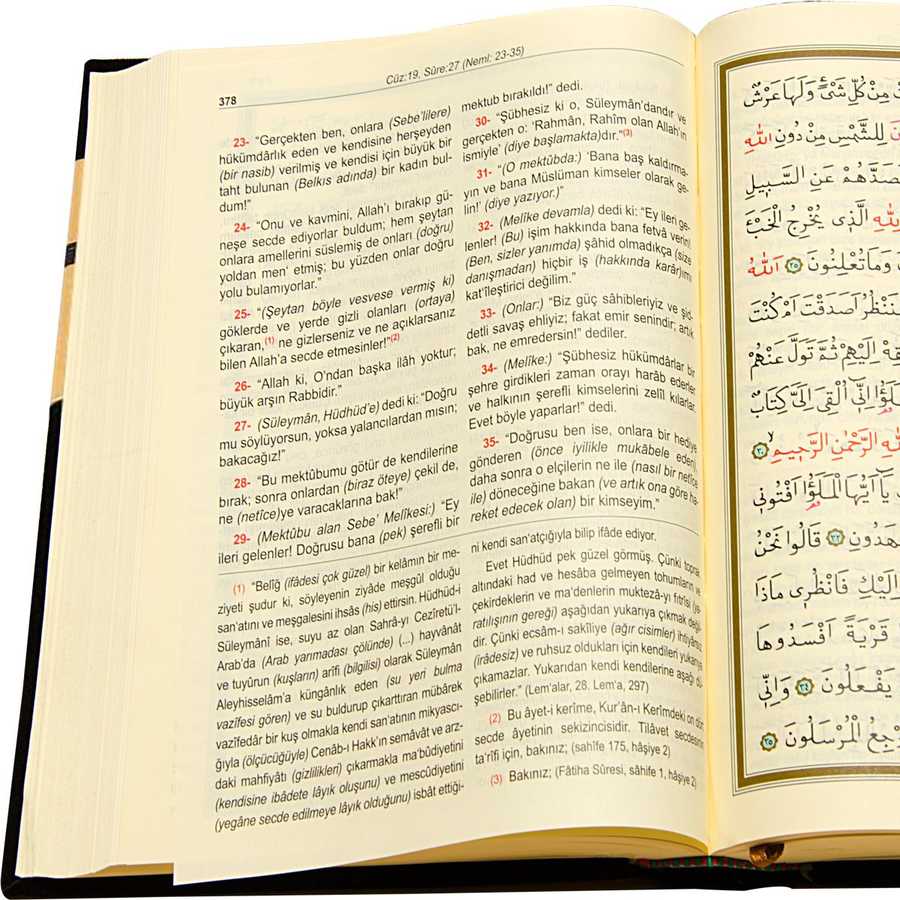 Cüz:19, Sûre:27 (Neml: 23-35)
378
23- “Gerçekten ben, onlara (Sebe’lilere)
hükümdârlık eden ve kendisine herşeyden
(bir nasib) verilmiş ve kendisi için büyük bir
taht bulunan (Belkıs adında) bir kadın bul-
dum!”
24- “Onu ve kavmini, Allah’ı bırakıp gü-
neşe secde ediyorlar buldum; hem şeytan
onlara amellerini süslemiş de onları (doğru)
yoldan men‘ etmiş; bu yüzden onlar doğru
yolu bulamıyorlar.”
25- “(Şeytan böyle vesvese vermiş ki)
göklerde ve yerde gizli olanları (ortaya)
çıkaran,(1) ne gizlerseniz ve ne açıklarsanız
bilen Allah’a secde etmesinler!”(2)
26- “Allah ki, O’ndan başka ilâh yoktur;
büyük arşın Rabbidir.”
27- (Süleymân, Hüdhüd’e) dedi ki: “Doğru
mu söylüyorsun, yoksa yalancılardan mısın;
bakacağız!”
28- “Bu mektûbumu götür de kendilerine
bırak; sonra onlardan (biraz öteye) çekil de,
ne (netîce)ye varacaklarına bak!”
29- (Mektûbu alan Sebe’ Melîkesi:) “Ey
ileri gelenler! Doğrusu bana (pek) şerefli bir
mektub bırakıldı!” dedi.
30- “Şübhesiz ki o, Süleymân’dandır ve
gerçekten o: ‘Rahmân, Rahîm olan Allah’ın
ismiyle’ (diye başlamakta)dır.”(3)
31- “(O mektûbda:) ‘Bana baş kaldırma-
yın ve bana Müslüman kimseler olarak ge-
lin!’ (diye yazıyor.)”
32- (Melîke devamla) dedi ki: “Ey ileri ge-
lenler! (Bu) işim hakkında bana fetvâ verin!
(Ben, sizler yanımda) şâhid olmadıkça (size
danışmadan) hiçbir iş (hakkında karâr)ımı
kat‘îleştirici değilim.”
33- (Onlar:) “Biz güç sâhibleriyiz ve şid-
detli savaş ehliyiz; fakat emir senindir; artık
bak, ne emredersin!” dediler.
34- (Melîke:) “Şübhesiz hükümdârlar bir
şehre girdikleri zaman orayı harâb ederler
ve halkının şerefli kimselerini zelîl kılarlar.
Evet böyle yaparlar!” dedi.
35- “Doğrusu ben ise, onlara bir hediye
gönderen (önce iyilikle mukābele eden),
daha sonra o elçilerin ne ile (nasıl bir netîce
ile) döneceğine bakan (ve artık ona göre ha-
reket edecek olan) bir kimseyim.”
(1) “Belîğ (ifâdesi çok güzel) bir kelâmın bir me-
ziyeti şudur ki, söyleyenin ziyâde meşgūl olduğu
san‘atını ve meşgalesini ihsâs (his) ettirsin. Hüdhüd-i
Süleymânî ise, suyu az olan Sahrâ-yı Cezîretü’l-
Arab’da (Arab yarımadası çölünde) (...) hayvânât
ve tuyûrun (kuşların) arîfi (bilgilisi) olarak Süleymân
Aleyhisselâm’a küngânlık eden (su yeri bulma
vazîfesi gören) ve su buldurup çıkarttıran mübârek
vazîfedâr bir kuş olmakla kendi san‘atının mikyascı-
ğıyla (ölçücüğüyle) Cenâb-ı Hakk’ın semâvât ve arz-
daki mahfiyâtı (gizlilikleri) çıkarmakla ma‘bûdiyetini
(kendisine ibâdete lâyık oluşunu) ve mescûdiyetini
(yegâne secde edilmeye lâyık olduğunu) isbât ettiği-
ni kendi san‘atçığıyla bilip ifâde ediyor.
Evet Hüdhüd pek güzel görmüş. Çünki toprak
altındaki had ve hesâba gelmeyen tohumların ve
çekirdeklerin ve ma‘denlerin muktezâ-yı fıtrîsi (ya-
ratılışının gereği) aşağıdan yukarıya çıkmak değil-
dir. Çünki ecsâm-ı sakîliye (ağır cisimler) ihtiyârsız
(irâdesiz) ve ruhsuz oldukları için kendileri yukarıya
çıkamazlar. Yukarıdan kendi kendilerine aşağı dü-
şebilirler.” (Lem‘alar, 28. Lem‘a, 297)
(2) Bu âyet-i kerîme, Kur’ân-ı Kerîmdeki on dört
secde âyetinin sekizincisidir. Tilâvet secdesinin
ta‘rîfi için, bakınız; (sahîfe 175, hâşiye 2)
(3) Bakınız; (Fâtiha Sûresi, sahîfe 1, hâşiye 2)
مِنْ كُلِّ شَيْءٍ وَلَهَا عَرْشٌ
لِلشَّمْسِ مِنْ دُونِ اللّٰهِ
فَصَدَّهُمْ عَنِ السَّبِيلِ
الَّذِي يُخْرِجُ الْخَبْءَ
وَمَا تُعْلِنُونَ ﴿٢٥﴾ اَللّٰهُ
سَنَنْظُرُ اَصَدَقْتَ اَمْ كُنْتَ
اِلَيْهِمْ ثُمَّ تَوَلَّ عَنْهُمْ
اِنِّي اُلْقِيَ اِلَيَّ كِتَابٌ
اللّٰهِ الرَّحْمٰنِ الرَّحِيمِ ﴿٣٠﴾
يَا اَيُّهَا الْمَلَؤُا اَفْتُونِي
﴿٣٢﴾ قَالُوا نَحْنُ
اِلَيْكِ فَانْظُرِي مَاذَا
قَرْيَةً اَفْسَدُوهَا
يَفْعَلُونَ ﴿٣٤﴾ وَاِنِّي
الْمُرْسَلُونَ ﴿٣٥﴾